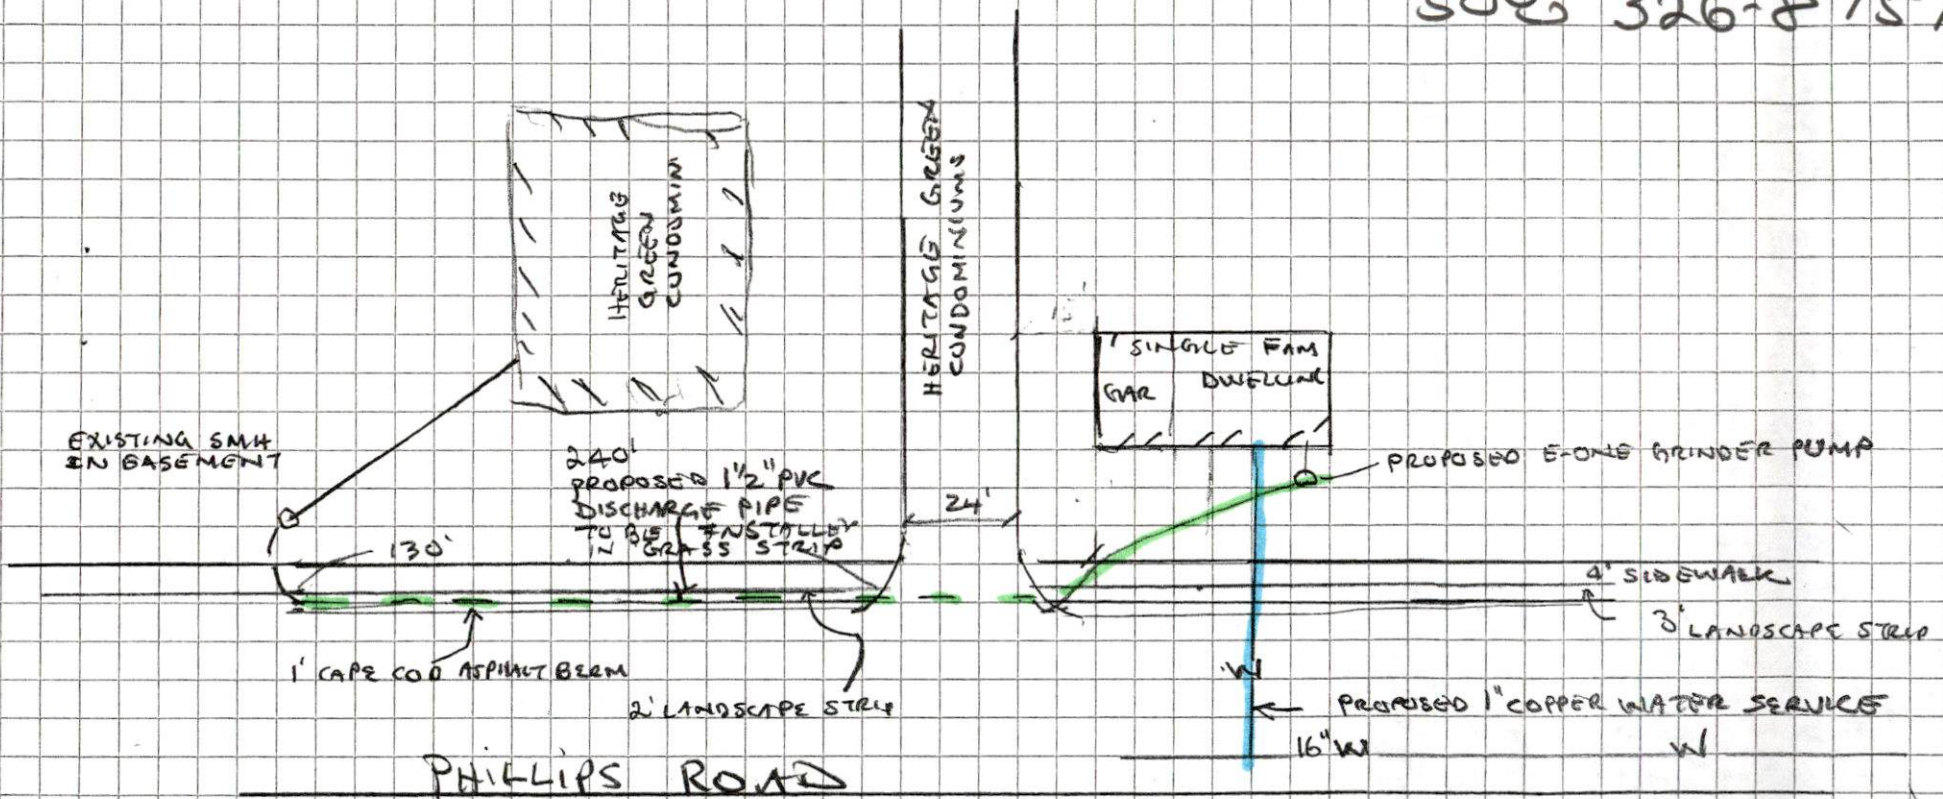 326-8
HERITAGE
GREEN
CUNDOMIN
HERITAGE GREEN
CUNDOMINIUMS
15'
SINGLE FAM
DWELLING
GAR
EXISTING SMH
IN EASEMENT
240'
PROPOSED 1½" PVC
DISCHARGE PIPE
TO BE INSTALLED
IN GRASS STRIP
130'
24'
PROPOSED E-ONE GRINDER PUMP
4' SIDEWALK
3' LANDSCAPE STRIP
1' CAPE COD ASPHALT BERM
2' LANDSCAPE STRIP
W
PROPOSED 1" COPPER WATER SERVICE
16" W
W
PHILLIPS ROAD